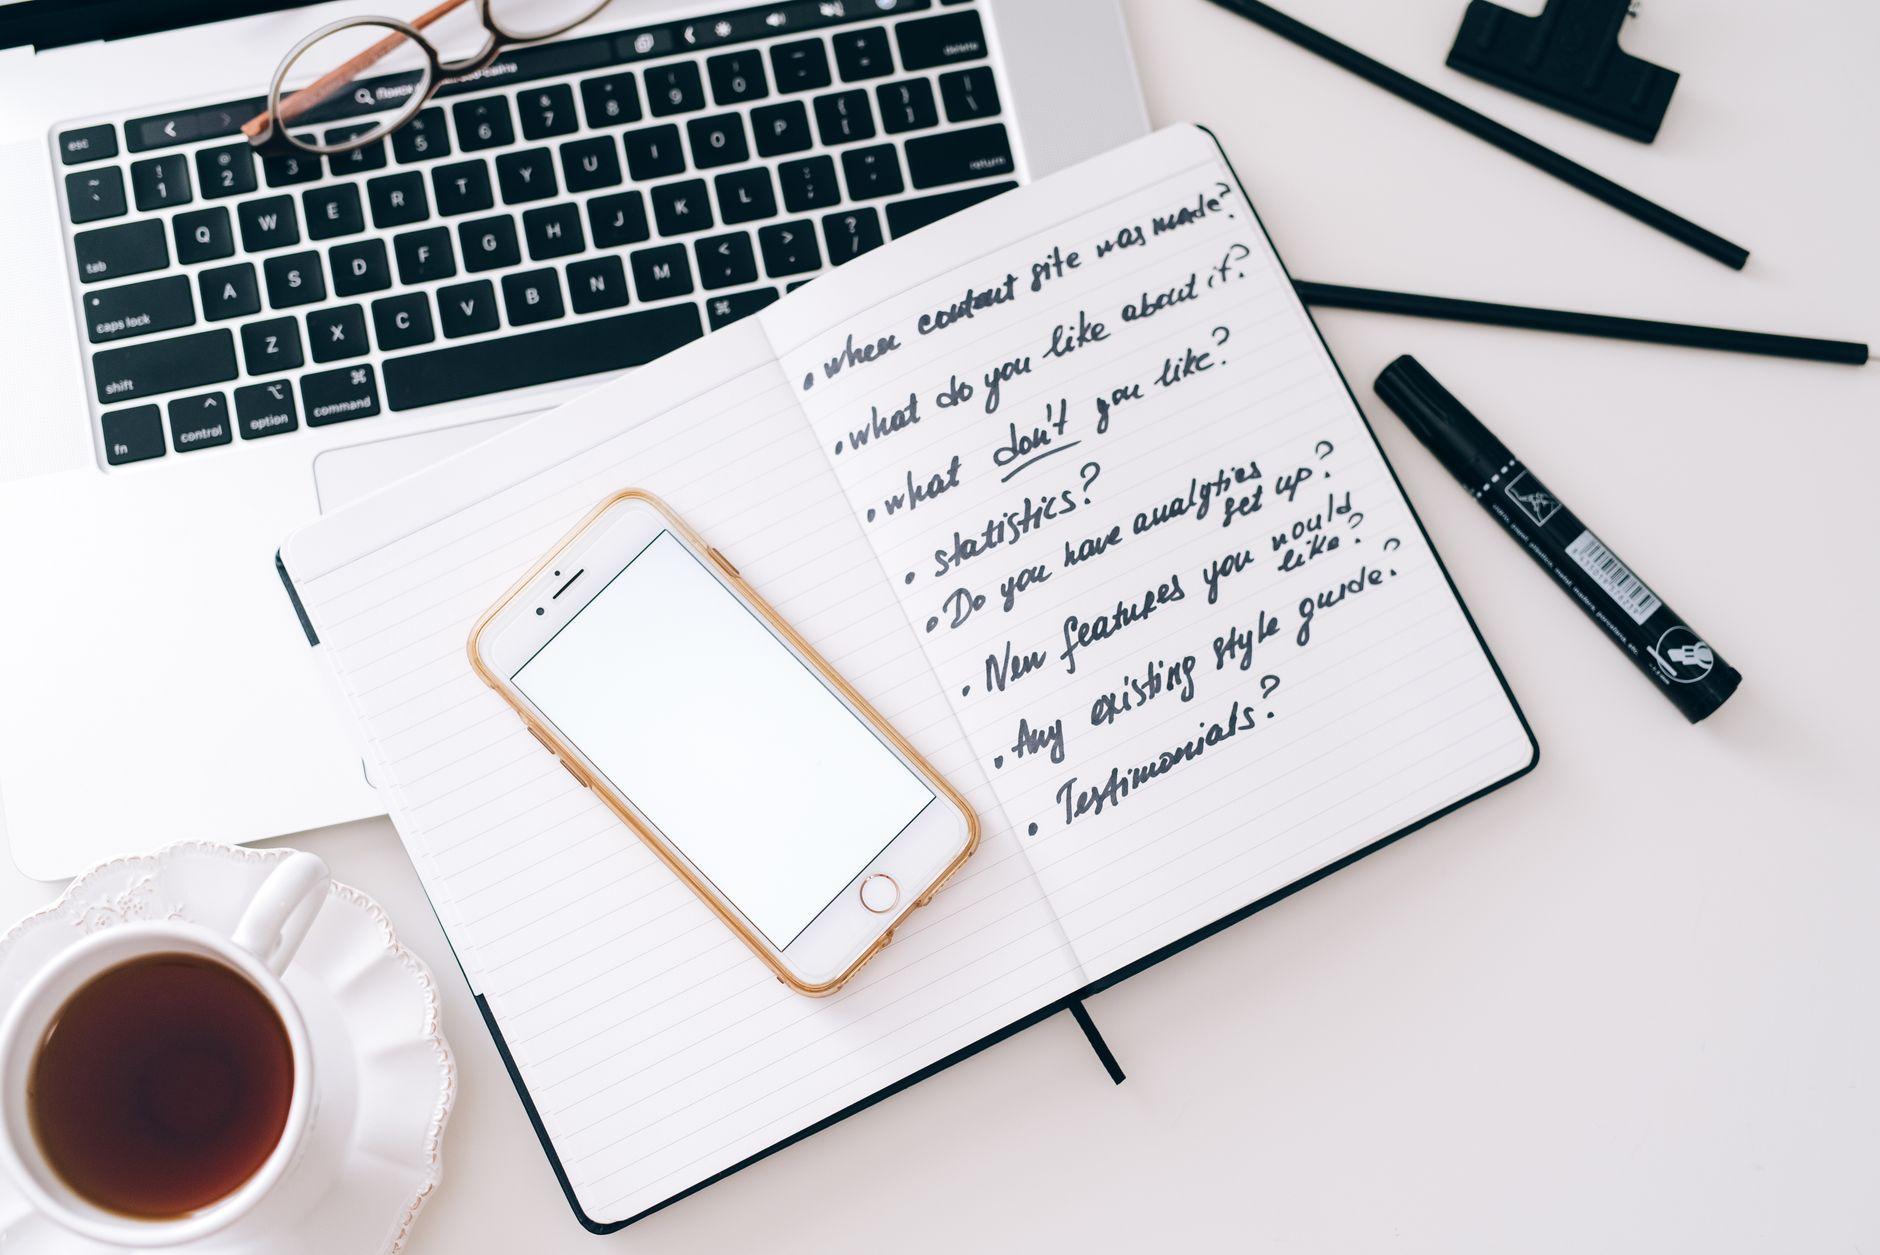 esc
Поиск
delete
~ ` ! 1 @ 2 3 4 5 ^ 6 & 7 * 8 ( 9 ) 0 _ - + =
tab Q W E R T Y U I O P { [ } ] | \
caps lock A S D F G H J K L : ; " ' return
shift Z X C V B N M < , > . ? /
fn control option command ⌘ ⌘
• when content site was made?
• what do you like about it?
• what don't you like?
• statistics?
• Do you have analytics
set up?
• New features you would
like?
• Any existing style guide?
• Testimonials?